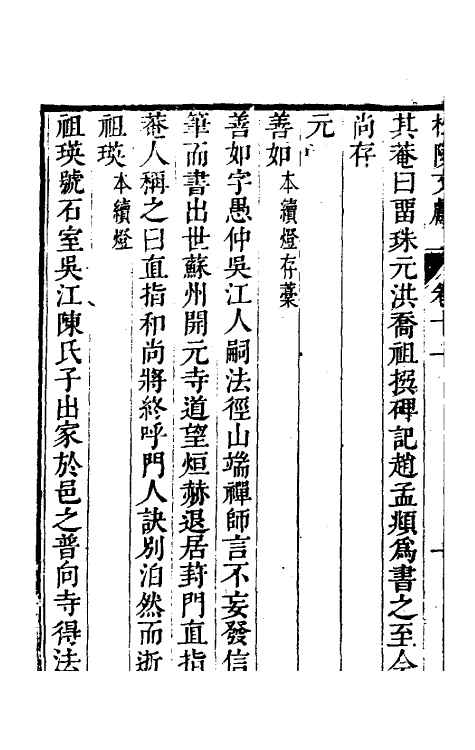 松陵文獻 卷十一 十
其菴曰畱珠元洪喬祖撰碑記趙孟頫為書之至今
尚存
元
善如本續燈存藁
善如字愚仲吳江人嗣法徑山端禪師言不妄發信
筆而書出世蘇州開元寺道望烜赫退居葑門直指
菴人稱之曰直指和尚將終呼門人訣別泊然而逝
祖瑛本續燈
祖瑛號石室吳江陳氏子出家於邑之普向寺得法